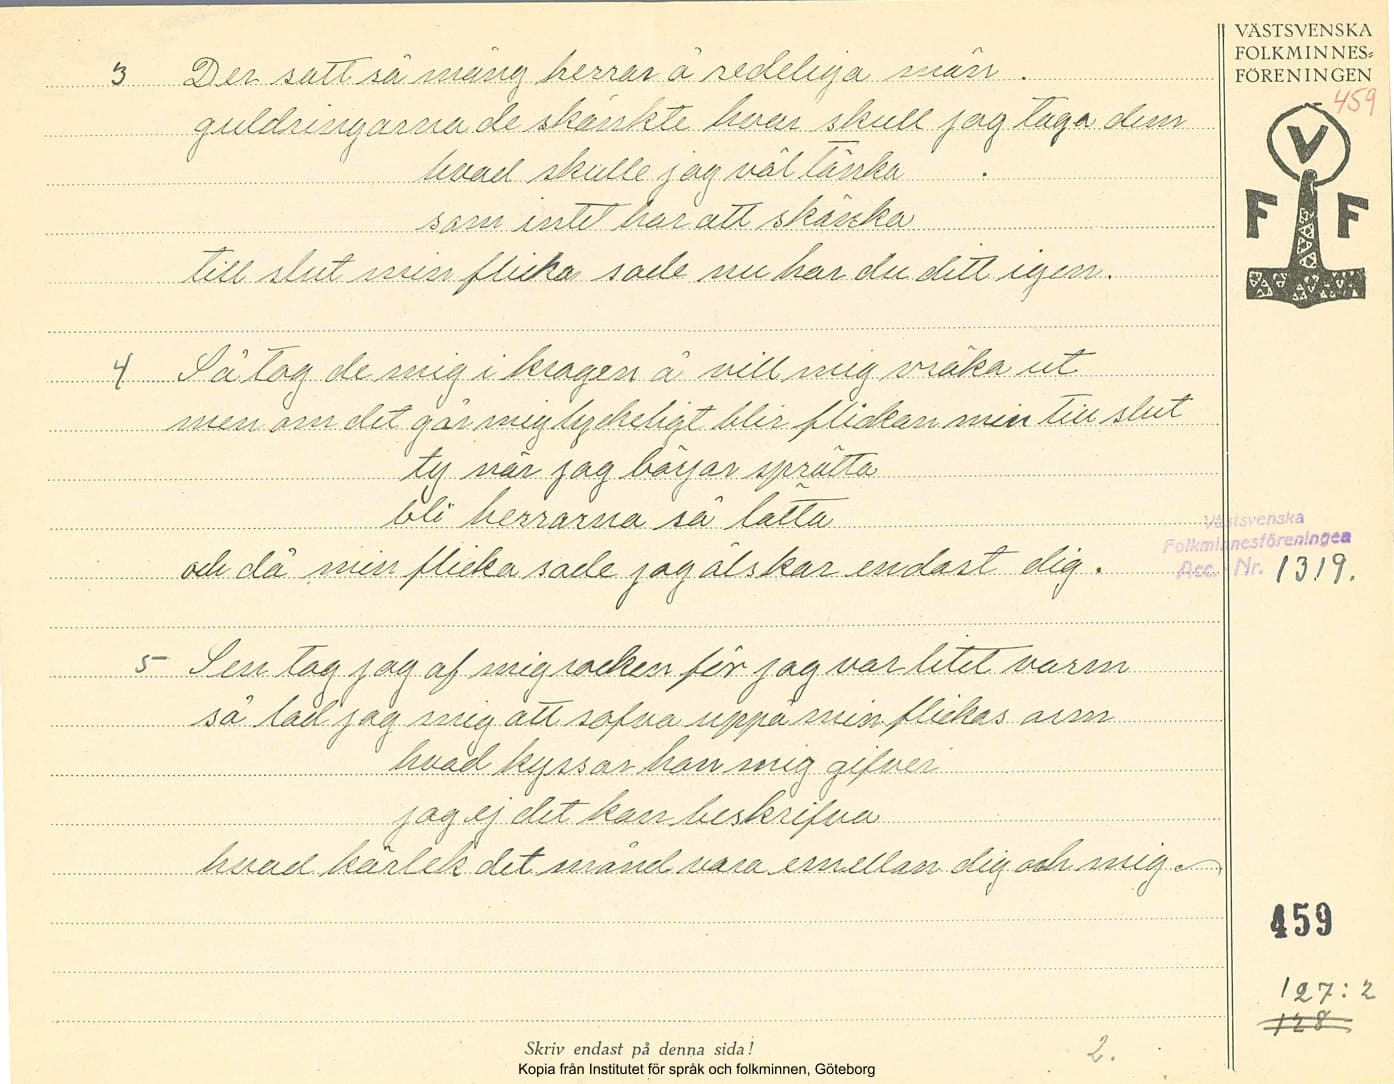 VÄSTSVENSKA
FOLKMINNES-
FÖRENINGEN
459
V
F F
3 Der satt så mäng herrar å redeliga män.
guldringarna de skänkte hvar skull jag taga dem
hvad skulle jag väl tänka
som intet har att skänka
till slut min flicka sade nu har du ditt igen.
4 Så tog de mig i kragen å vill mig vräka ut
men om det går mig lyckeligt blir flickan min till slut
ty när jag börjar sprätta
bli herrarna så lätta
och då min flicka sade jag älskar endast dig.
Västsvenska
Folkminnesföreningen
Acc. Nr. 1319.
5 Sen tog jag af mig rocken för jag var litet varm
så lad jag mig att sofva uppå min flickas arm
hvad kyssar hon mig gifver
jag ej det kan beskrifva
hvad kärlek det månd vara emellan dig och mig.
459
127:2
128
Skriv endast på denna sida!
2.
Kopia från Institutet för språk och folkminnen, Göteborg